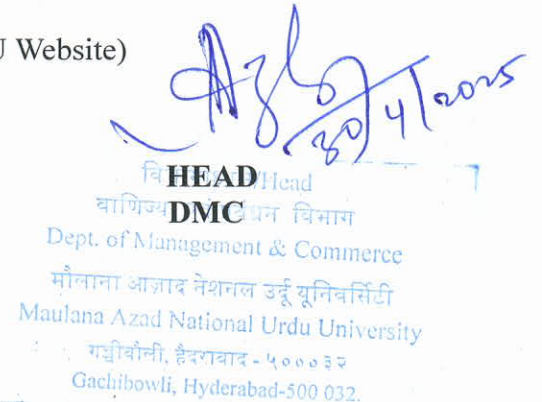 U Website)
30/4/2025
HEAD
/Head
DMC
वाणिज्य विभाग
Dept. of Management & Commerce
मौलाना आज़ाद नेशनल उर्दू यूनिवर्सिटी
Maulana Azad National Urdu University
गच्चीबौली, हैदराबाद - ५०००३२
Gachibowli, Hyderabad-500 032.